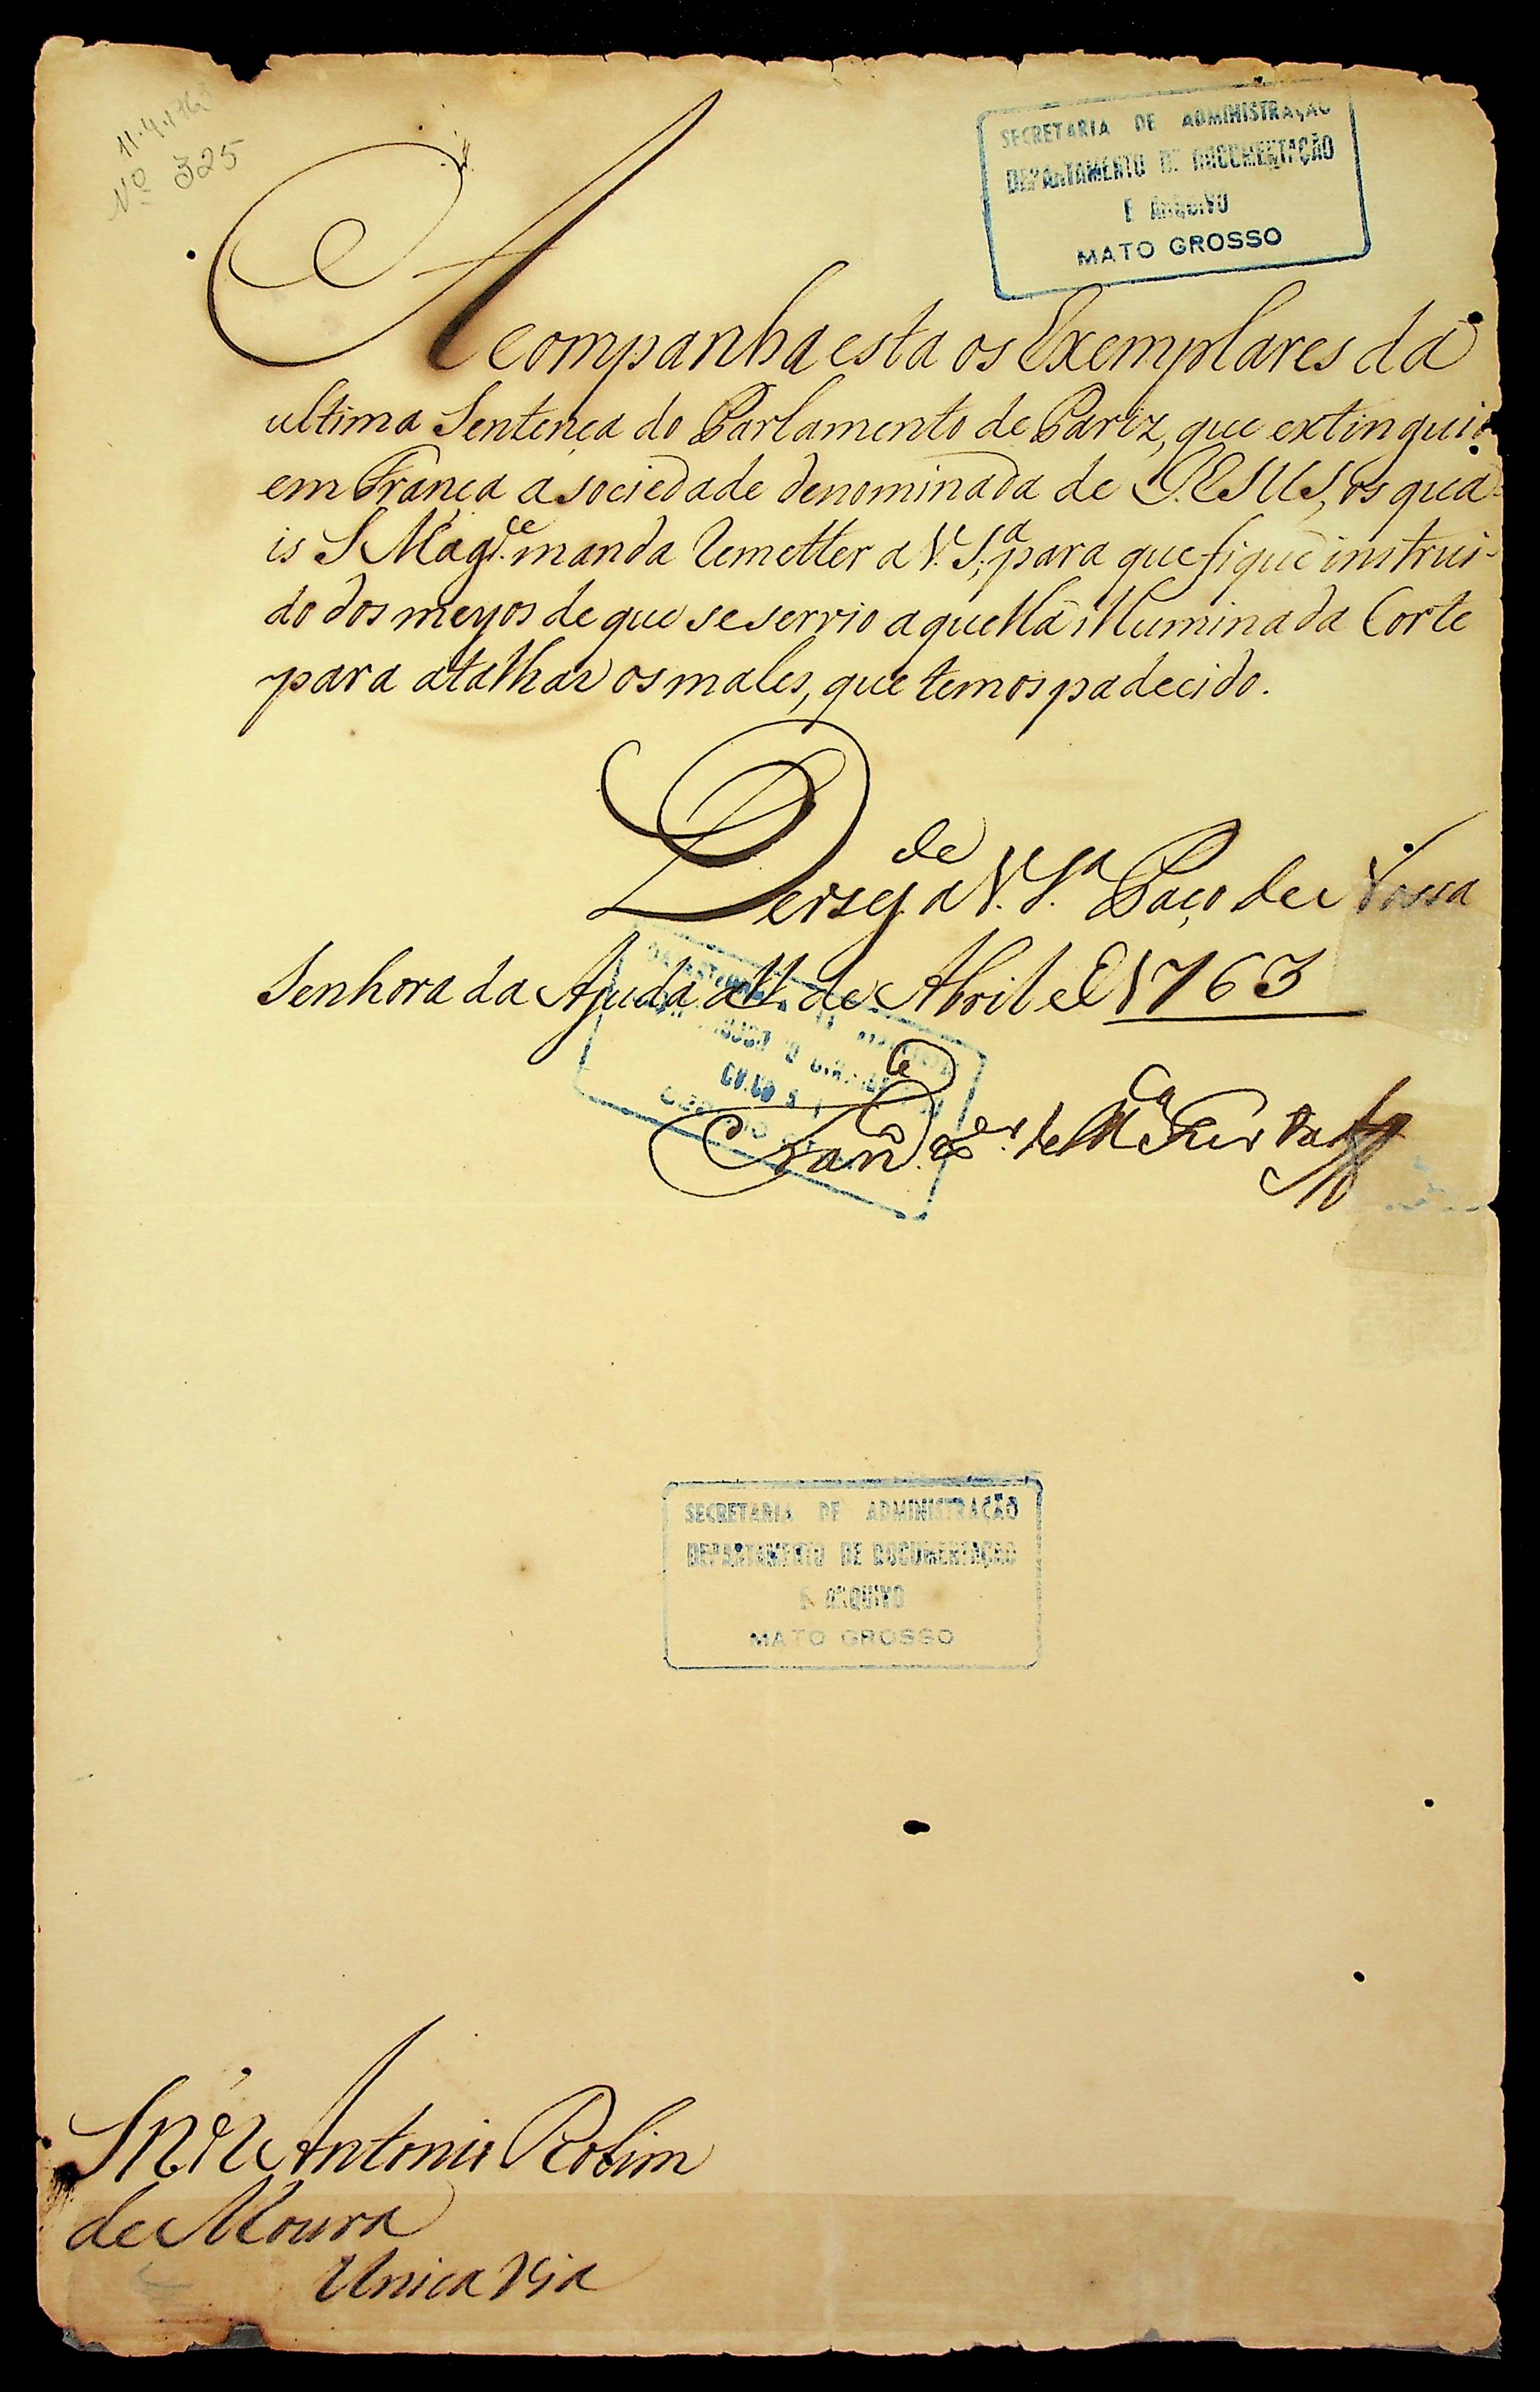 11.4.176
Nº 325
SECRETARIA DE ADMINISTRAÇÃO
DEPARTAMENTO DE DOCUMENTAÇÃO
E ARQUIVO
MATO GROSSO
Acompanha esta os Exemplares da
ultima Sentença do Parlamento de Pariz, que extinguio
em França a sociedade denominada de JESUS, os qua-
is S Magde. manda remetter a V. Sa; para que fique instrui-
do dos meyos de que se servio aquella illuminada Corte
para atalhar os males, que temos padecido.
Ds gde a V. Sa. Paço de Nossa
Senhora da Ajuda a 11 de Abril de 1763
Franco Xer. de Mça Furtado
SECRETARIA DE ADMINISTRAÇÃO
DEPARTAMENTO DE DOCUMENTAÇÃO
E ARQUIVO
MATO GROSSO
Snr Antonio Rolim
de Moura
Unica Via